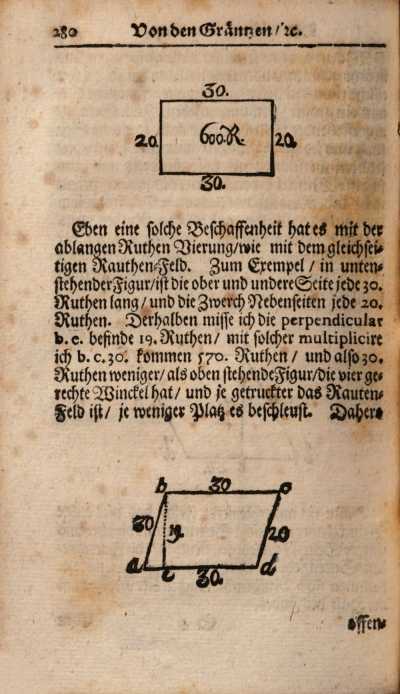 280 Von den Gräntzen/ ꝛc.
30.
20. 600.R. 20.
30.
Eben eine solche Beschaffenheit hat es mit der
ablangen Ruthen Vierung/wie mit dem gleichsei-
tigen Rauthen-Feld. Zum Exempel/ in unten-
stehender Figur/ist die ober und undere Seite jede 30.
Ruthen lang/ und die Zwerch Nebenseiten jede 20.
Ruthen. Derhalben misse ich die perpendicular
b. c. befinde 19. Ruthen/ mit solcher multiplicire
ich b. c. 30. kommen 570. Ruthen/ und also 30.
Ruthen weniger/als oben stehende Figur/die vier ge-
rechte Winckel hat/ und je getruckter das Rauten-
Feld ist/ je weniger Platz es beschleust. Dahero
b 30 o
30 19. 20
a c 30. d
offen-